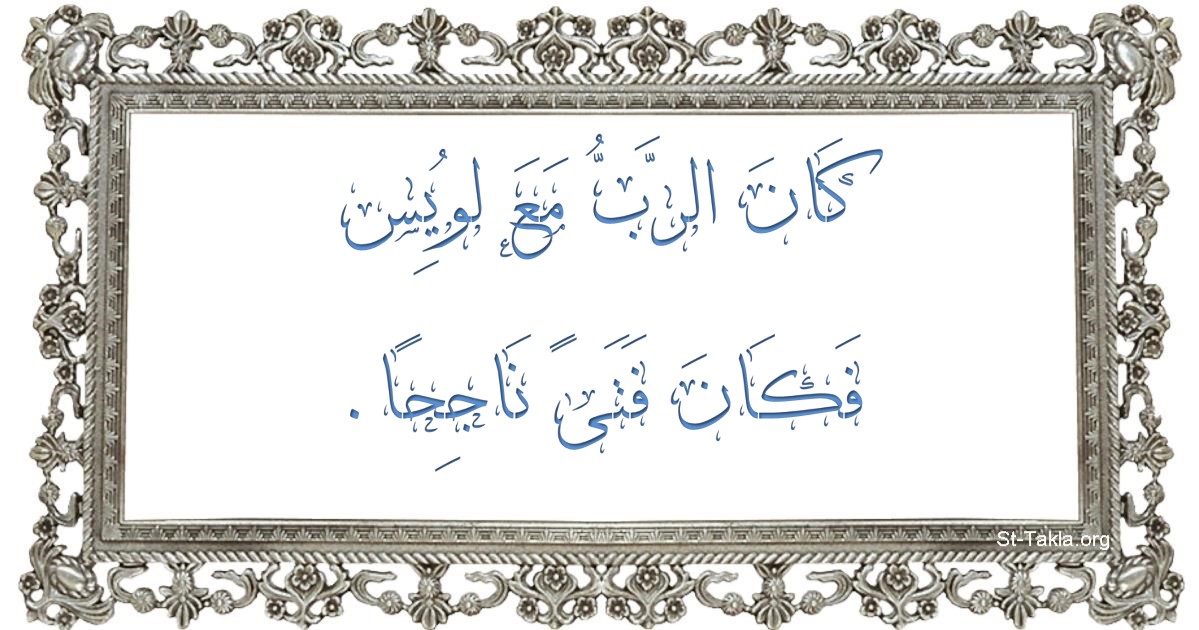 كَانَ الرَّبُّ مَعَ لويُِس
فَكَانَ فَتَىً نَاجِحًا .
St-Takla.org